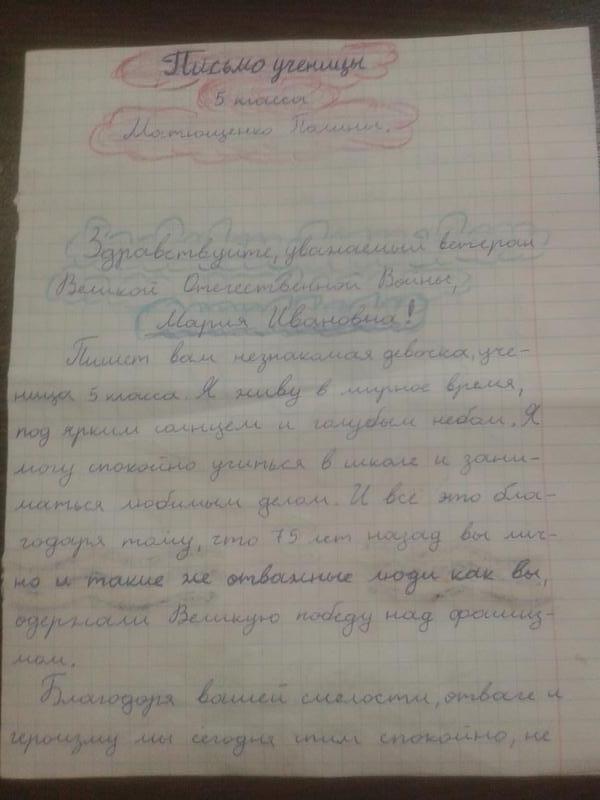 Письмо ученицы
5 класса
Матющенко Полины.
Здравствуйте, уважаемый ветеран
Великой Отечественной Войны,
Мария Ивановна!
Пишет вам незнакомая девочка, уче-
ница 5 класса. Я живу в мирное время,
под ярким солнцем и голубым небом. Я
могу спокойно учиться в школе и зани-
маться любимым делом. И всё это бла-
годаря тому, что 75 лет назад вы лич-
но и такие же отважные люди как вы,
одержали Великую победу над фашиз-
мом.
Благодаря вашей смелости, отваге и
героизму мы сегодня спим спокойно, не